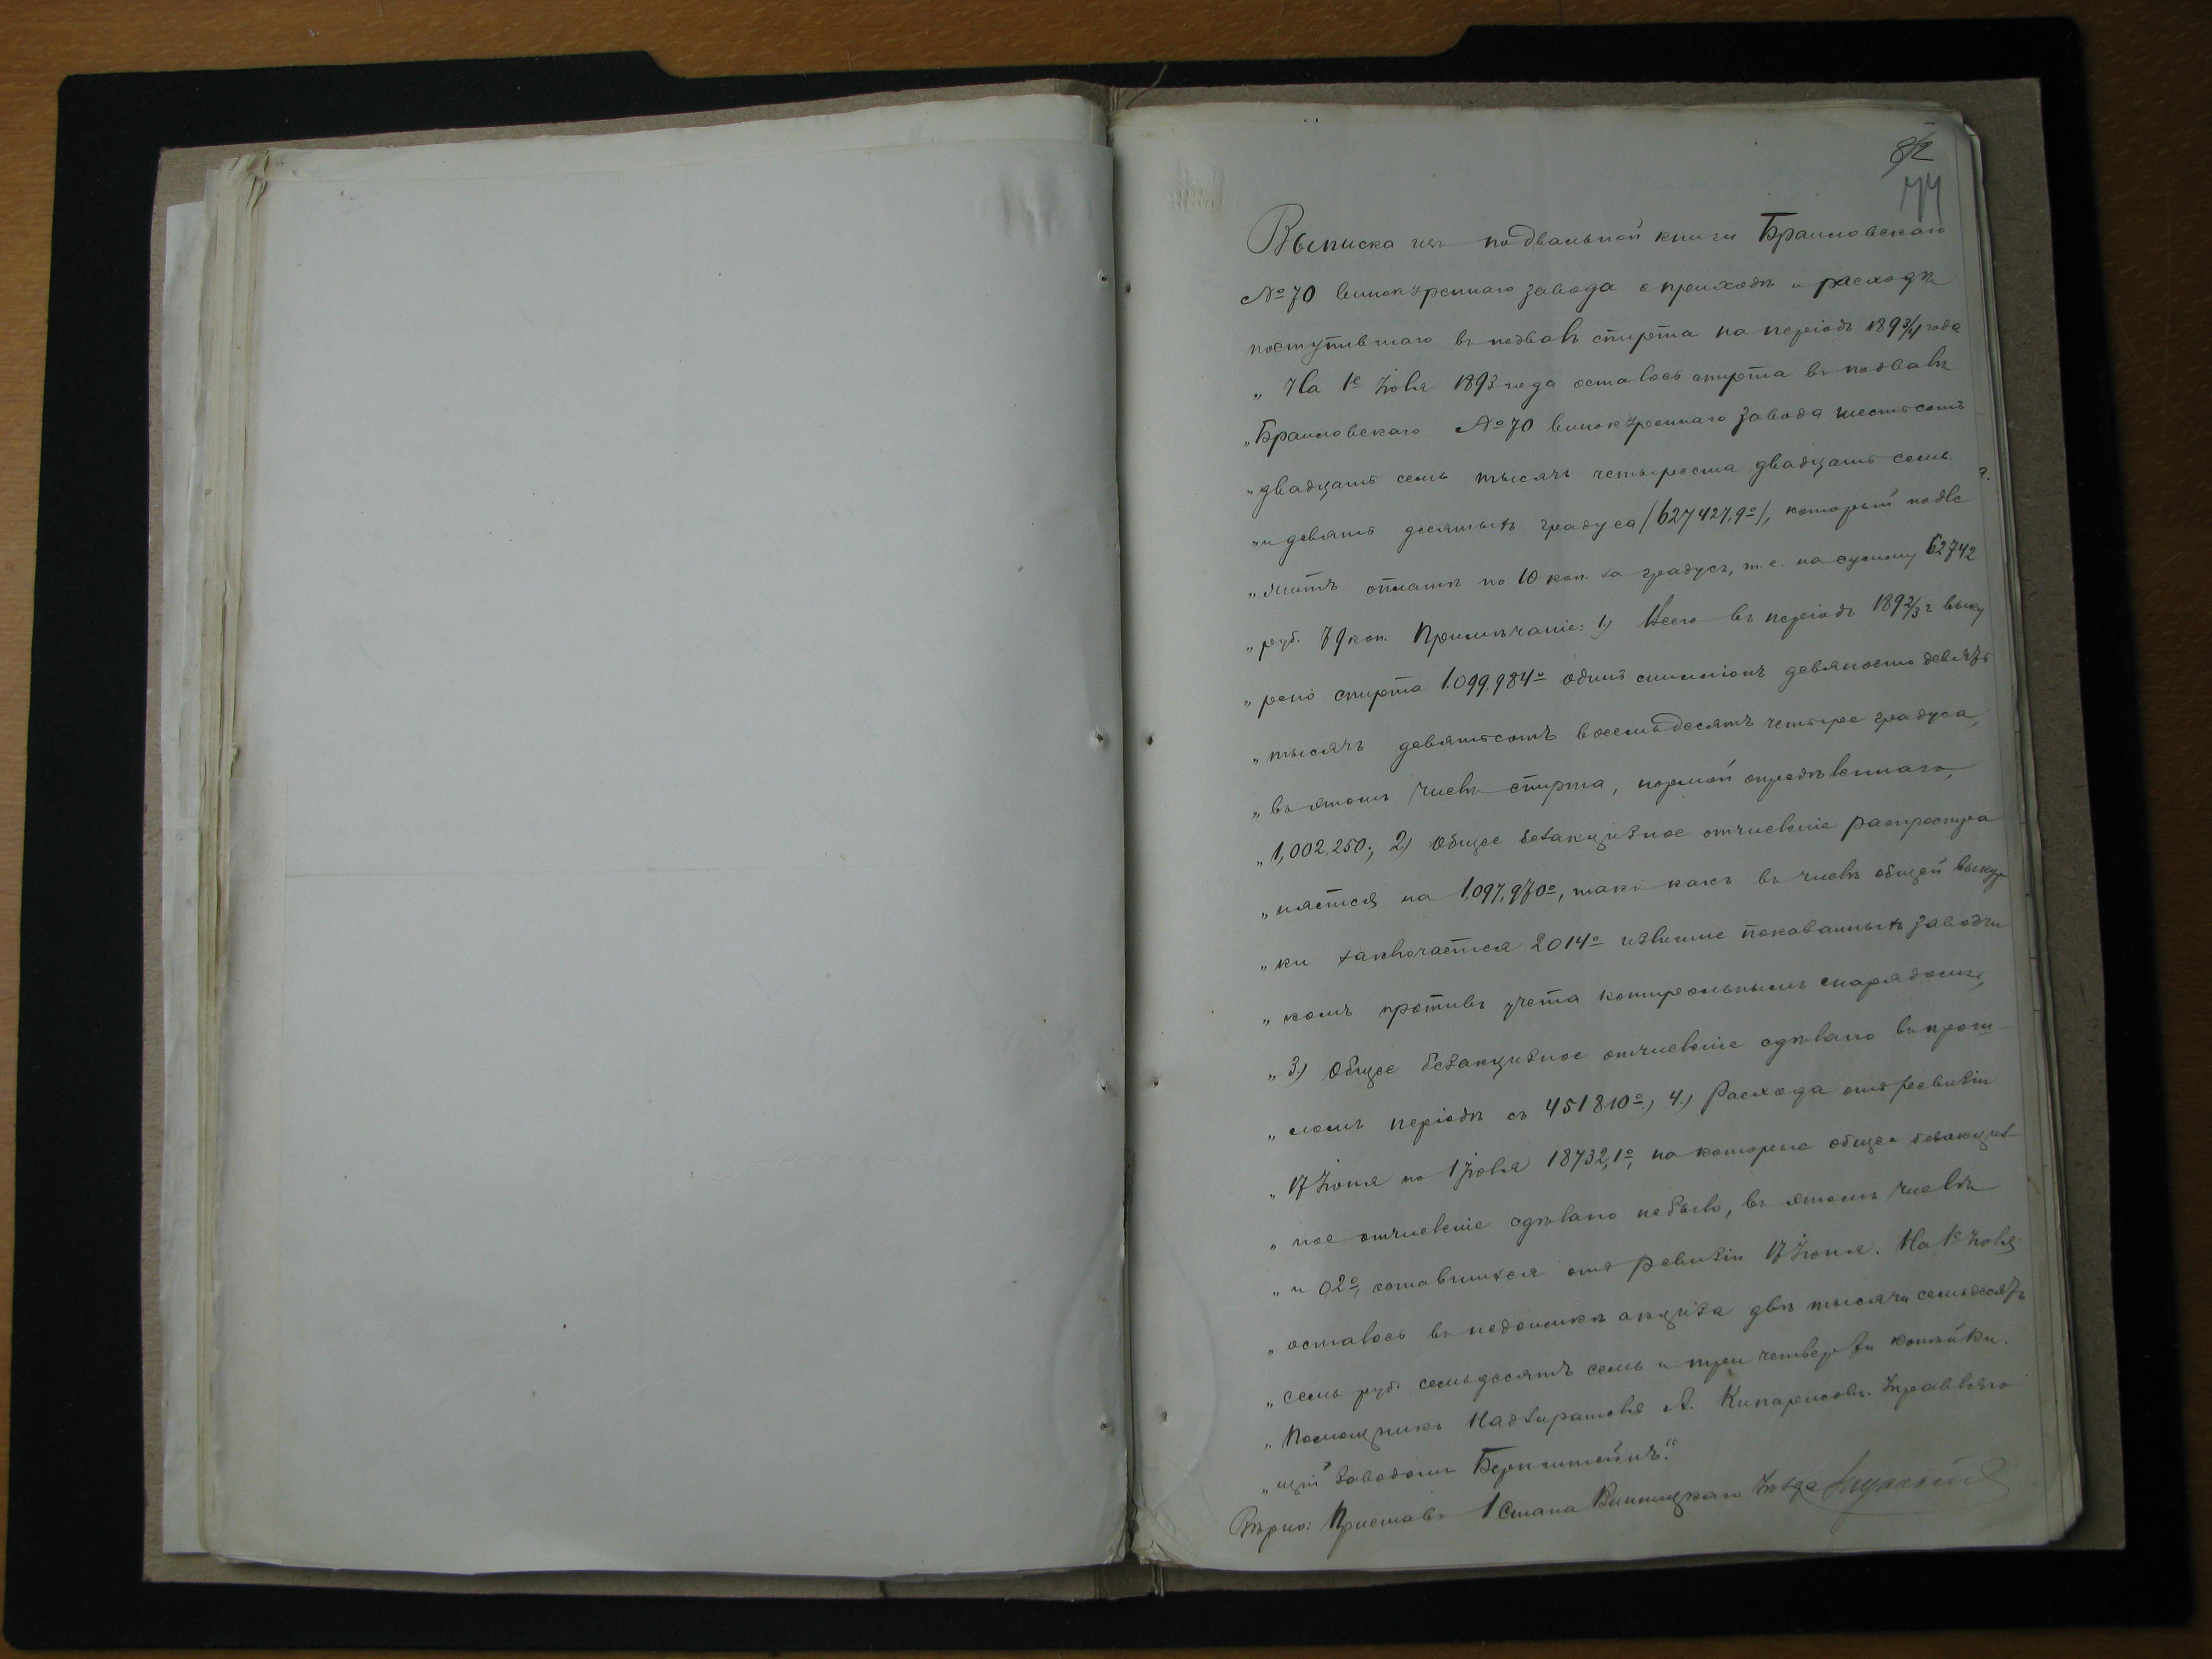 82
74
Выписка изъ подвальной книги Браиловскаго
№ 70 винокуреннаго завода о приходѣ и расходѣ
поступившаго въ подвалъ спирта на періодъ 1893/4 года
„ На 1е Іюля 1893 года осталось спирта въ подвалѣ
„ Браиловскаго № 70 винокуреннаго завода шестьсотъ
„ двадцать семь тысячъ четыреста двадцать семь
„ и девять десятыхъ градуса /627427,9°/, который подле
„ житъ оплатѣ по 10 коп. за градусъ, т. е. на сумму 62742
„ руб. 79 коп. Примѣчаніе: 1) Всего въ періодъ 1892/3 г выку
„ рено спирта 1.099,984° одинъ милліонъ девяносто девять
„ тысячъ девятьсотъ восемьдесятъ четыре градуса,
„ въ этомъ числѣ спирта, нормой опредѣленнаго,
„ 1,002,250; 2) Общее безакцизное отчисленіе распростра
„ няется на 1,097,970°, такъ какъ въ числѣ общей выкур
„ ки заключается 2014° излишне показанныхъ заводчи
„ комъ противъ учета контрольнымъ снарядомъ,
„ 3.) Общее безакцизное отчисленіе сдѣлано въ прош-
„ ломъ періодѣ съ 451810°; 4.) Расхода отъ ревизіи
„ 17 Іюня по 1 Іюля 18732,1°, на которые общее безакциз-
„ ное отчисленіе сдѣлано не было, въ этомъ числѣ
„ и 0,2°, оставшихся отъ ревизіи 17 Іюня. На 1е Іюля
„ осталось въ недоимкѣ акциза двѣ тысячи семьдесятъ
„ семь руб. семьдесятъ семь и три четверти копѣйки.
„ Помощникъ Надзирателя А. Кипарисовъ. Управляю
„ щій заводомъ Бернштейнъ.“
Вѣрно: Приставъ 1 Стана Винницкаго Уѣзда